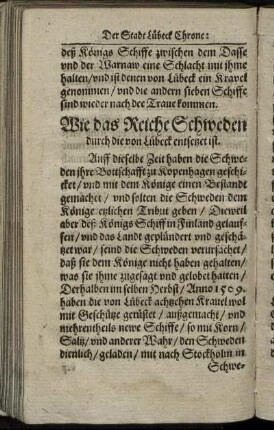 Der Stadt Lübeck Chronc:
deß Königs Schiffe zwischen dem Dasse
vnd der Warnaw eine Schlacht mit ihme
halten/vnd ist denen von Lübeck ein Kravel
genommen/ vnd die andern sieben Schiffe
sind wieder nach der Traue kommen.
Wie das Reiche Schweden
durch die von Lübeck entsetzet ist.
Auff dieselbe Zeit haben die Schwe-
den ihre Bottschafft zu Kopenhagen geschi-
cket/ vnd mit dem Könige einen Bestandt
gemachet/ vnd solten die Schweden dem
Könige etzlichen Tribut geben/ Dieweil
aber deß Königs Schiff in Finland gelauf-
fen/ vnd das Landt geplündert vnd geschä-
tzet war/ seind die Schweden verursachet/
daß sie dem Könige nicht haben gehalten/
was sie ihme zugesagt vnd gelobet hatten/
Derhalben im selben Herbst/ Anno 1509.
haben die von Lübeck achtzehen Krauel wol
mit Geschütze gerüstet/ außgemacht/ vnd
mehrentheils newe Schiffe/ so mit Korn/
Saltz/ vnd anderer Wahr/ den Schweden
dienlich/ geladen/ mit nach Stockholm in
Schwe-